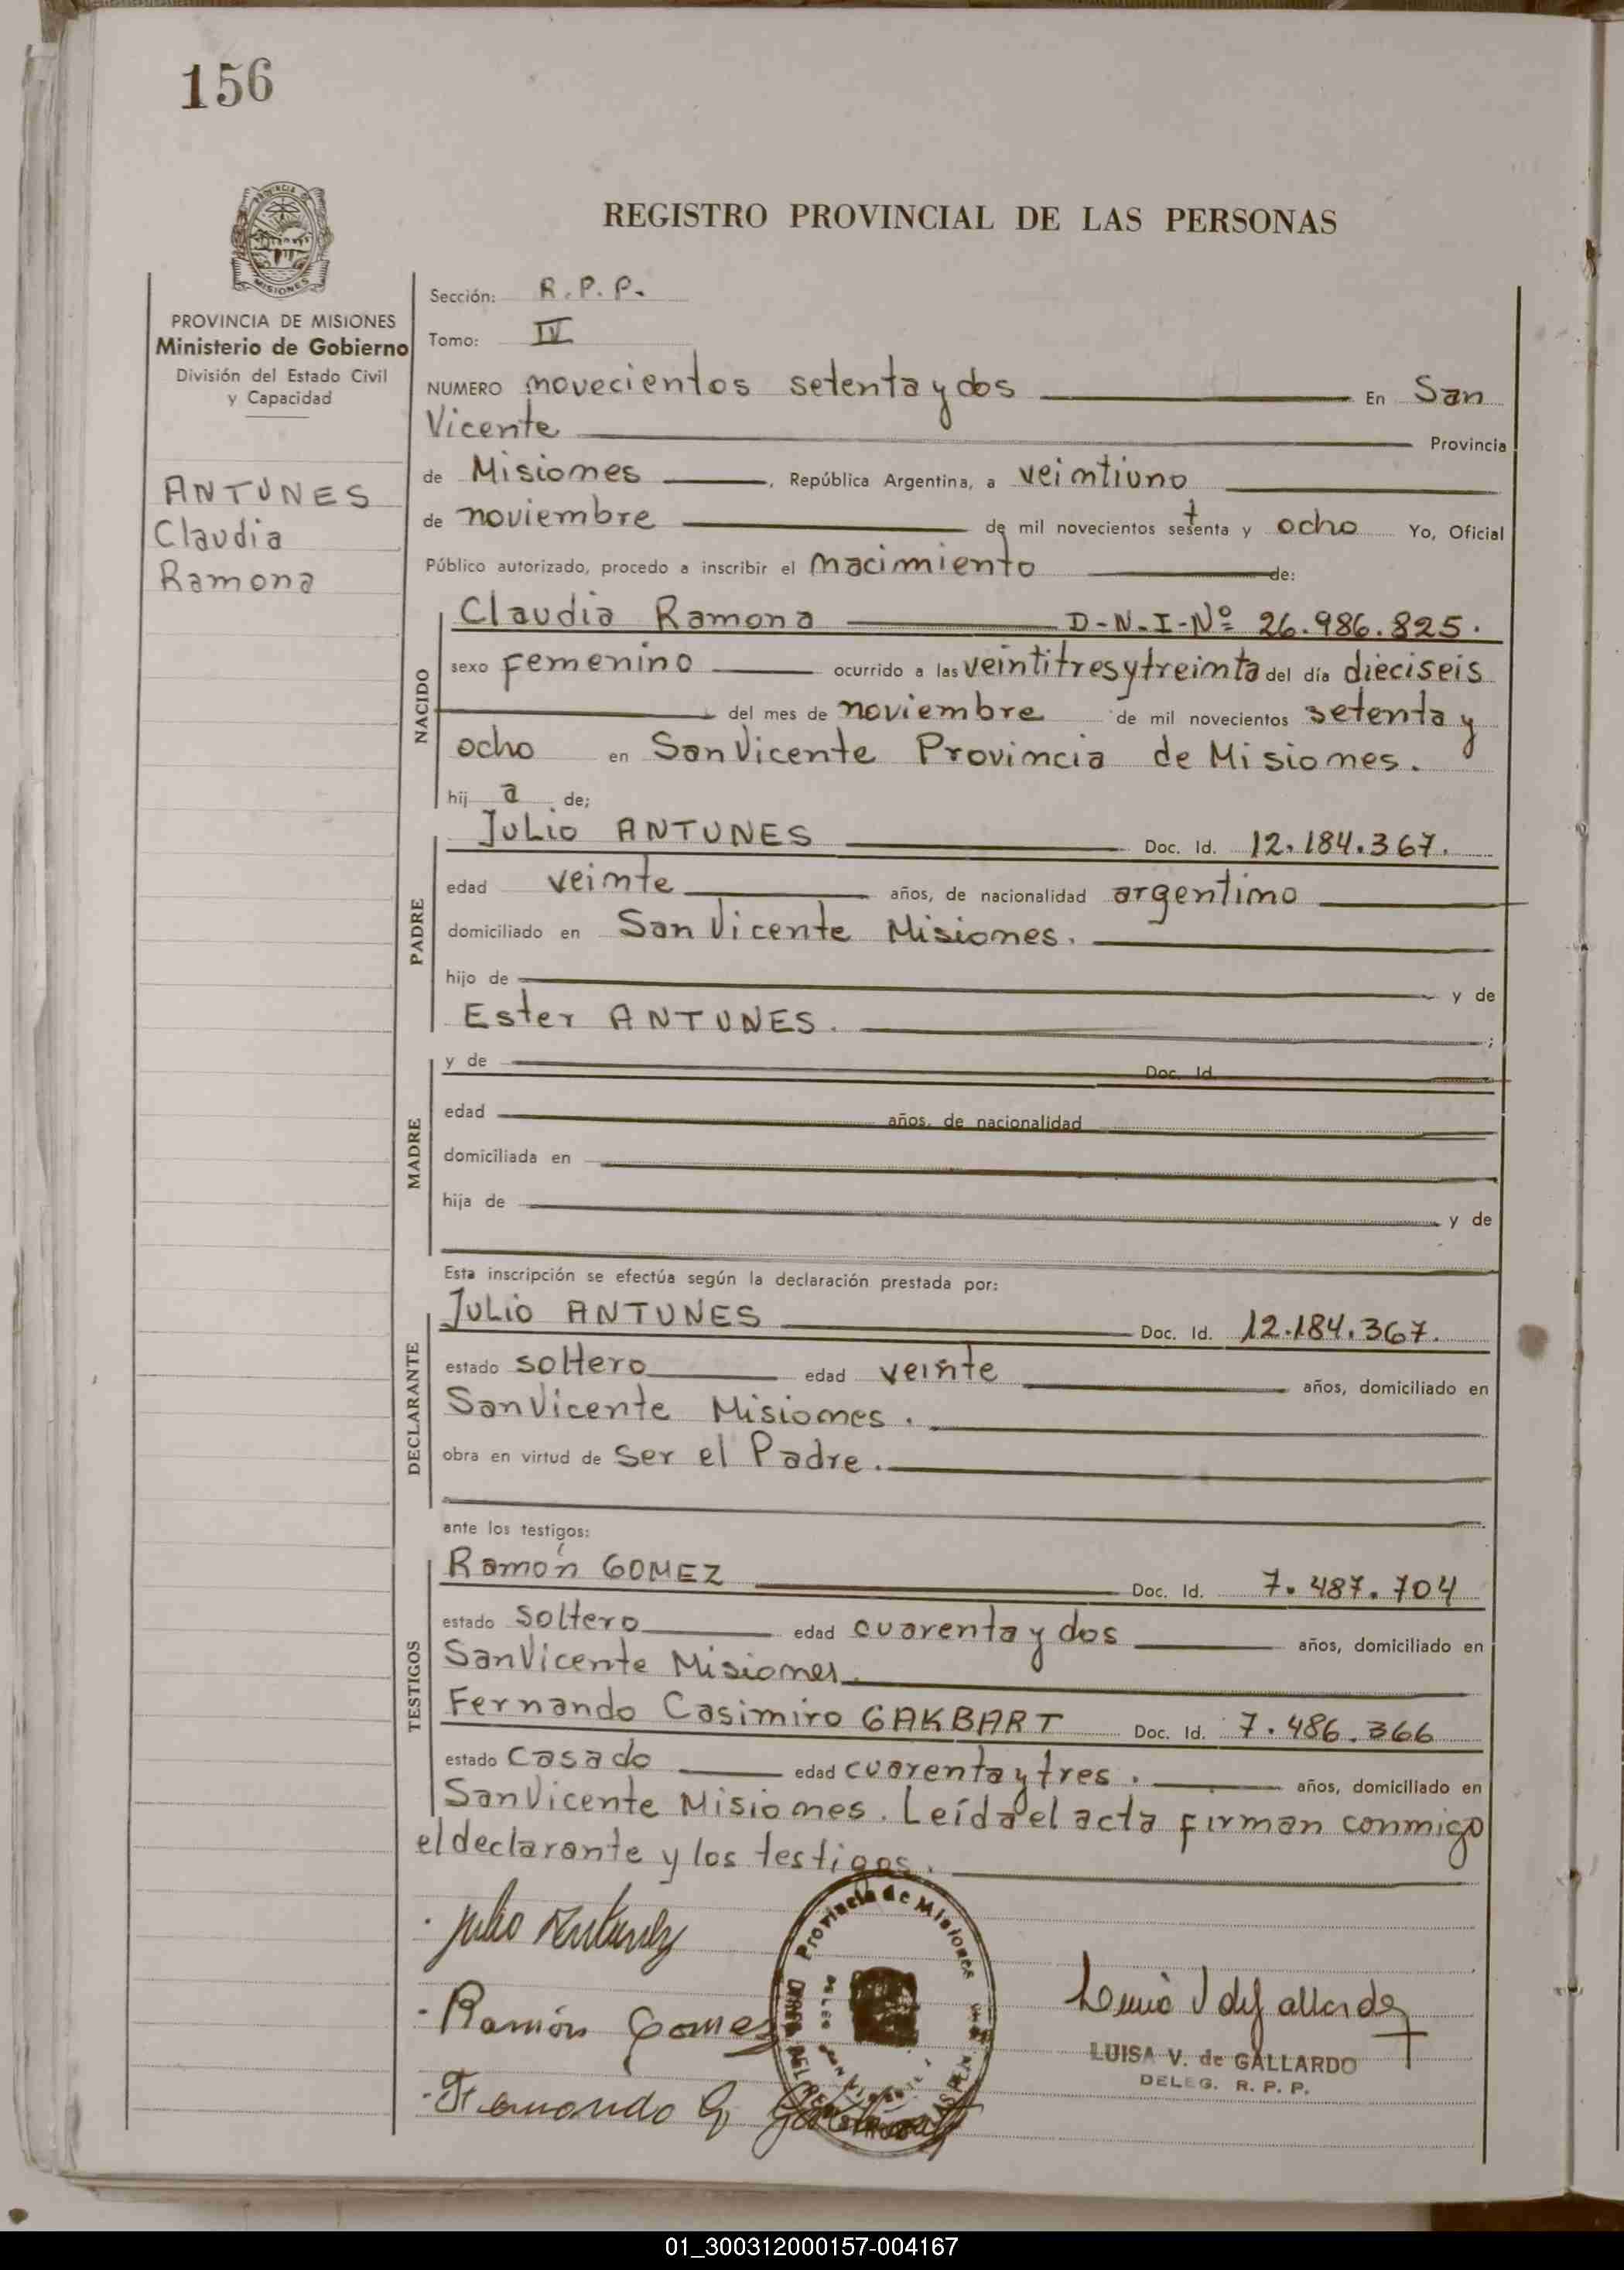 156
MISIONES
REGISTRO PROVINCIAL DE LAS PERSONAS
PROVINCIA DE MISIONES
Ministerio de Gobierno
División del Estado Civil
y Capacidad
ANTUNES
Claudia
Ramona
Sección: R.P.P.
Tomo: IV
NUMERO novecientos setenta y dos En San
Vicente Provincia
de Misiones, República Argentina, a veintiuno
de noviembre de mil novecientos setenta y ocho Yo, Oficial
Público autorizado, procedo a inscribir el nacimiento de:
NACIDO
Claudia Ramona D-N-I-Nº 26.986.825.
sexo femenino ocurrido a las veintitres y treinta del día dieciseis
del mes de noviembre de mil novecientos setenta y
ocho en San Vicente Provincia de Misiones.
hij a de;
PADRE
Julio ANTUNES Doc. Id. 12.184.367.
edad veinte años, de nacionalidad argentino
domiciliado en San Vicente Misiones.
hijo de y de
Ester ANTUNES. ;
MADRE
y de Doc. Id.
edad años, de nacionalidad
domiciliada en
hija de y de
Esta inscripción se efectúa según la declaración prestada por:
DECLARANTE
Julio ANTUNES Doc. Id. 12.184.367.
estado soltero edad veinte años, domiciliado en
San Vicente Misiones.
obra en virtud de ser el Padre.
ante los testigos:
TESTIGOS
Ramón GOMEZ Doc. Id. 7.487.704
estado soltero edad cuarenta y dos años, domiciliado en
San Vicente Misiones.
Fernando Casimiro GAKBART Doc. Id. 7.486.366
estado casado edad cuarenta y tres. años, domiciliado en
San Vicente Misiones. Leída el acta firman conmigo
el declarante y los testigos.
Provincia de Misiones
Julio Antunez
Ramón Gomez
Fernando
LUISA V. de GALLARDO
DELEG. R. P. P.
01_300312000157-004167